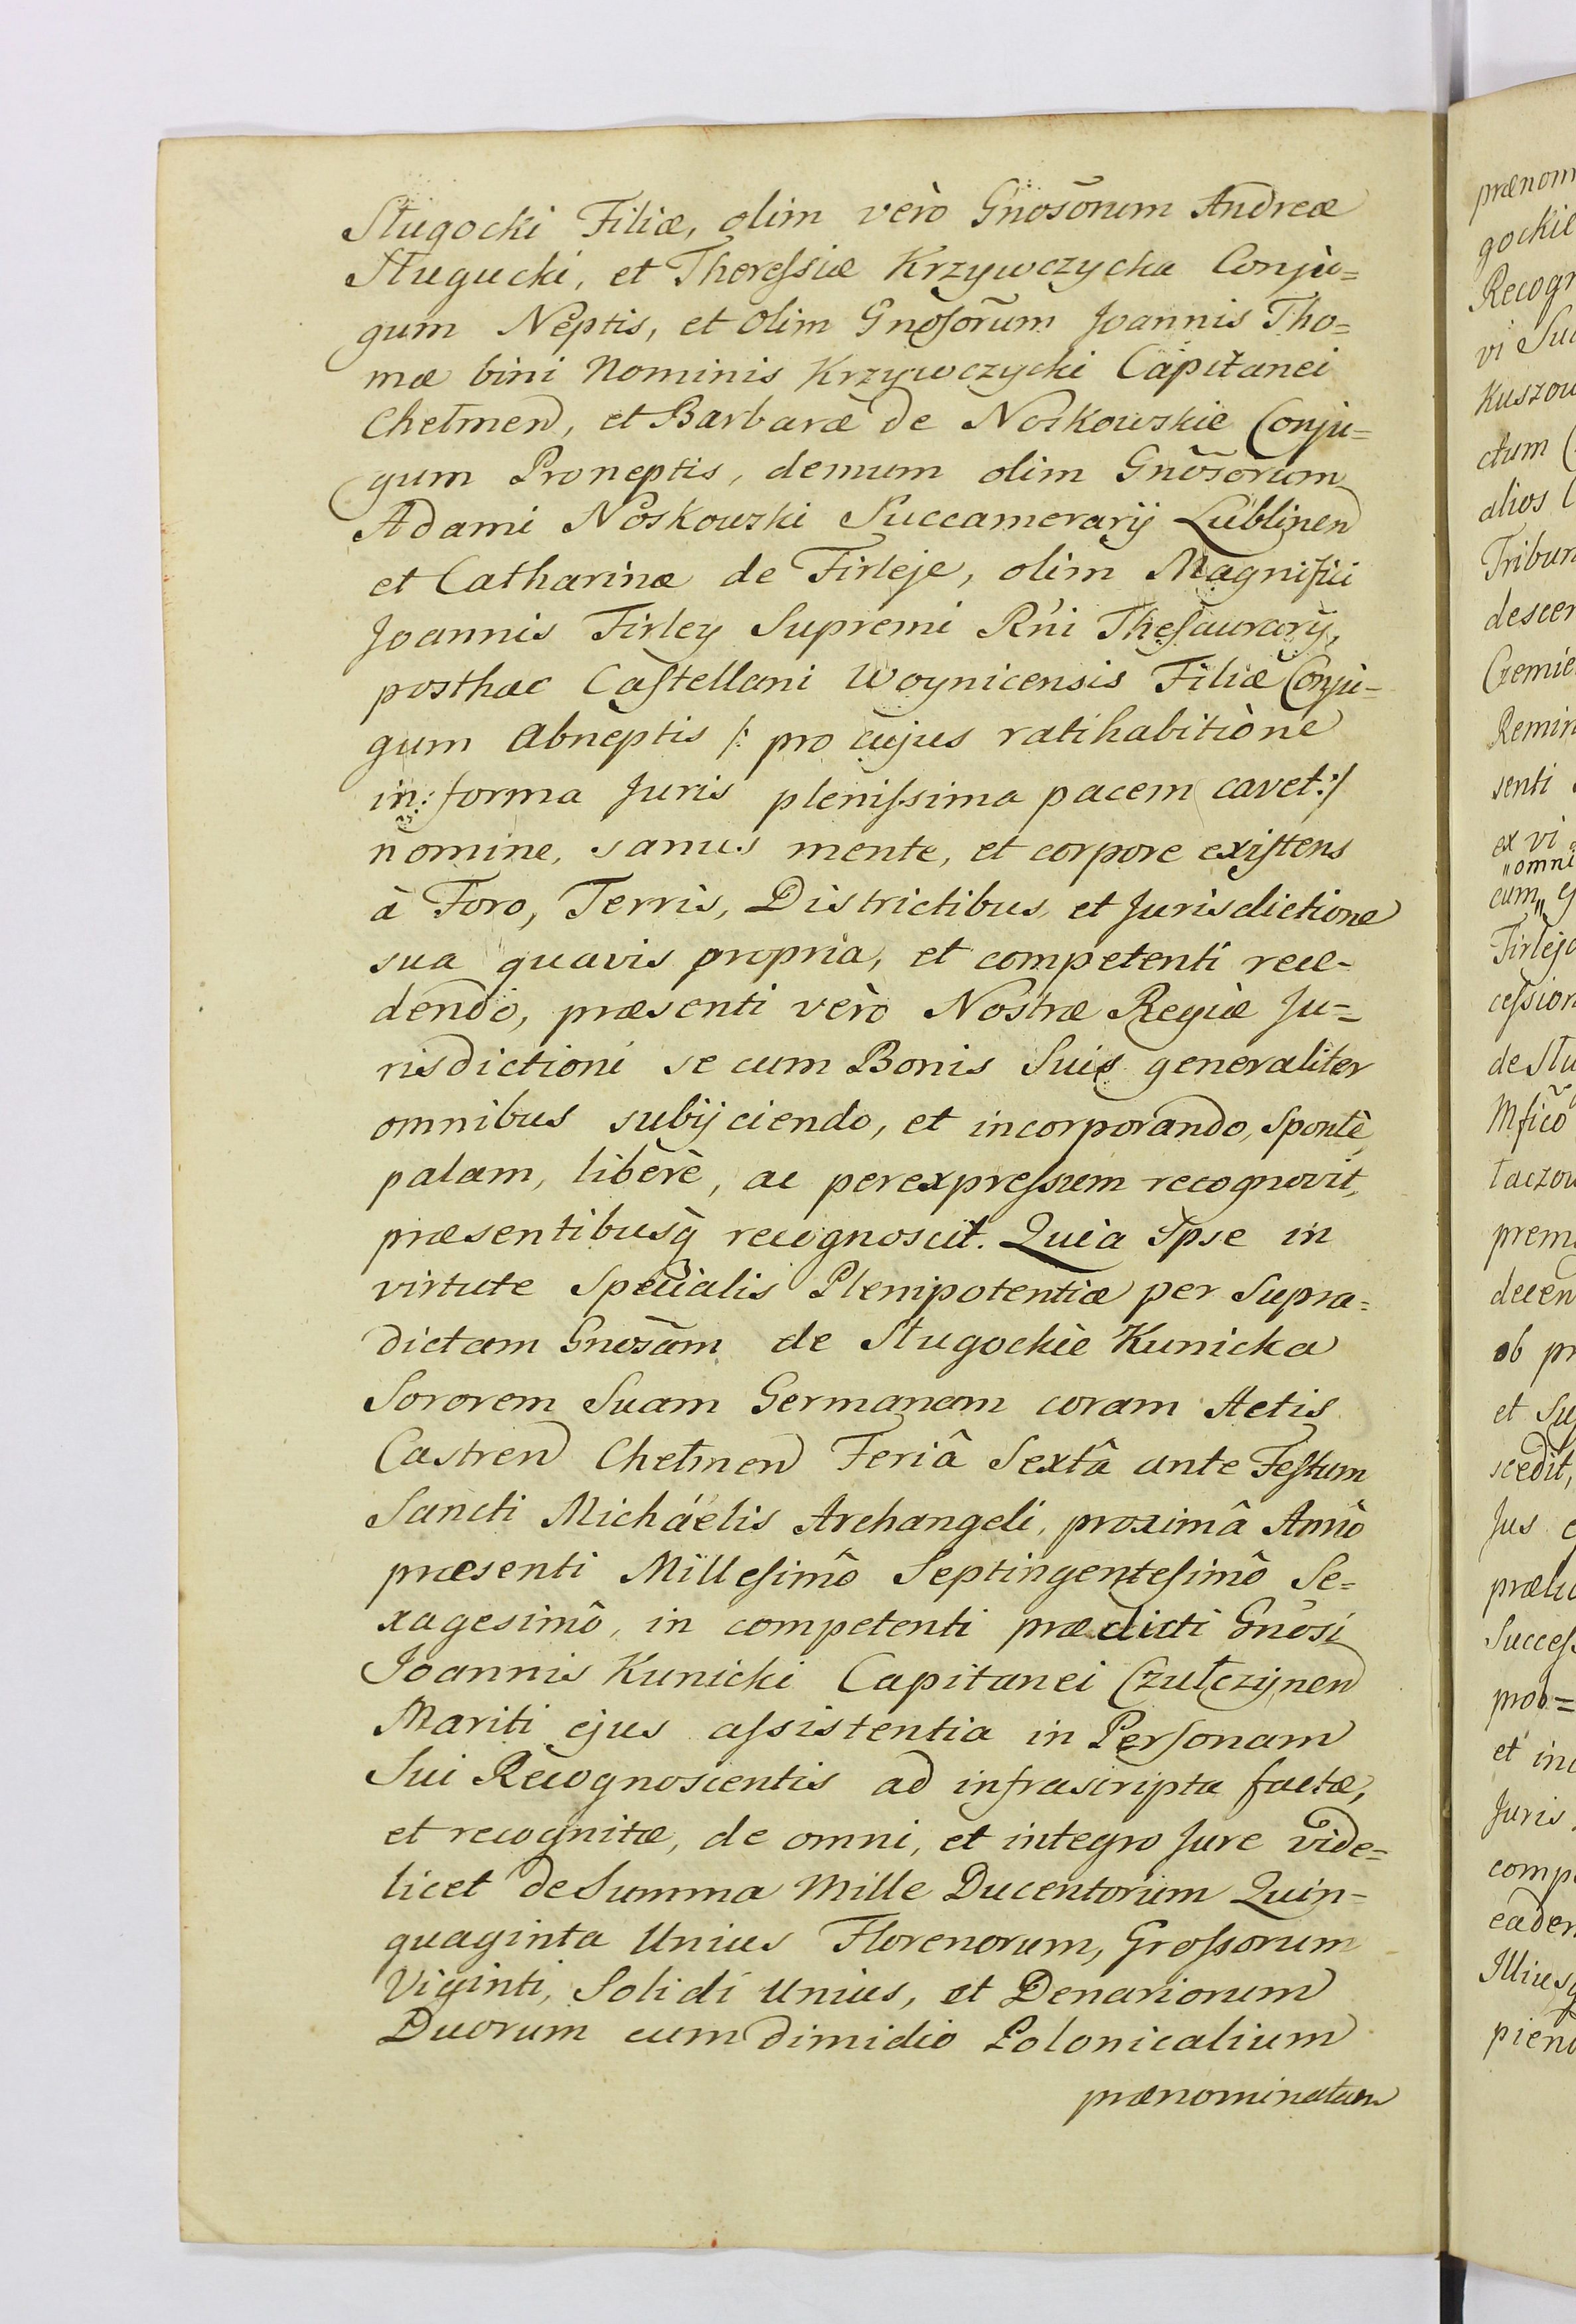 Sługocki Filiæ, olim verò Gnosõrum Andreæ
Sługucki, et Theressiæ Krzywczycka Conju=
gum Neptis, et olim Gnosõrum Joannis Tho=
mæ bini Nominis Krzywczycki Capitanei
Chełmen, et Barbaræ de Noskowskie Conju=
gum Proneptis, demum olim Gnõsorum
Adami Noskowski Succamerarij Lublinen
et Catharinæ de Firleje, olim Magnifici
Joannis Firley Supremi Rñi Thesaurarij,
posthac Castellani Woynicensis Filiæ Conju=
gum Abneptis /: pro cujus ratihabitiòne
in: forma Juris plenissima pacem cavet:/
nomine, sanus mente, et corpore existens
à Foro, Terris, Districtibus, et Jurisdictione
sua quavis propria, et competenti rece-
dendo, præsenti verò Nostræ Regiæ Ju=
risdictioni se cum Bonis Suis generaliter
omnibus subijciendo, et incorporando, Spontè,
palam, liberè, ac perexpressum recognovit,
præsentibusq̃ recognoscit. Quia Ipse in
virtute Specialis Plenipotentiæ per Supra=
dictam Gnosãm de Sługockie Kunicka
Sororem Suam Germanam coram Actis
Castren Chełmen Feriâ Sextâ ante Festum
Sancti Micháelis Archangeli, proximâ Annò
præsenti Millesimô Septingentesimô Se=
xagesimô, in competenti prædicti Gnõsi
Joannis Kunicki Capitanei Czułczynen
Mariti ejus assistentia in Personam
Sui Recognoscentis ad infrascripta factæ,
et recognitæ, de omni, et integro Jure vide=
licet de Summa Mille Ducentorum Quin=
quaginta Unius Florenorum, Grossorum
Viginti, Solidi Unius, et Denariorum
Duorum cum dimidio Polonicalium
prænominatam
prænom
gockie
Recogn
vi Suc
Kuszow
ctum
alios
Tribun
descen
Czemie
Remin
senti
ex vi
"omni
cum"
Firlejo
cession
de Słu
Mfico
taczow
prem
decen
ob pr
et Su
scedit,
Jus
præli
Success
prob=
et in
Juris,
comp
eadem
Illiusq
piend